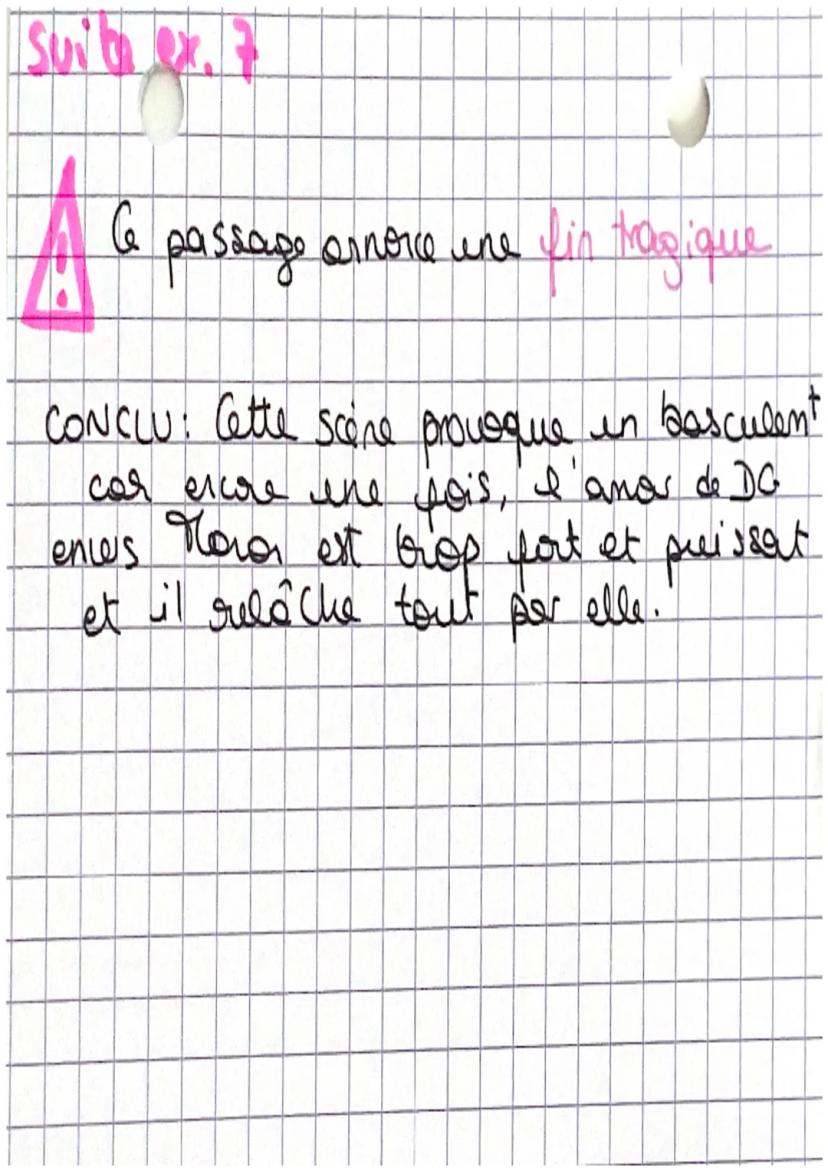 suite ex. 7
Ce passage annonce une fin tragique
CONCLU: Cette scène provoque un basculent
car encore une fois, l'amor de DG
envers Manon est trop fort et puissant
et il relâche tout par elle.